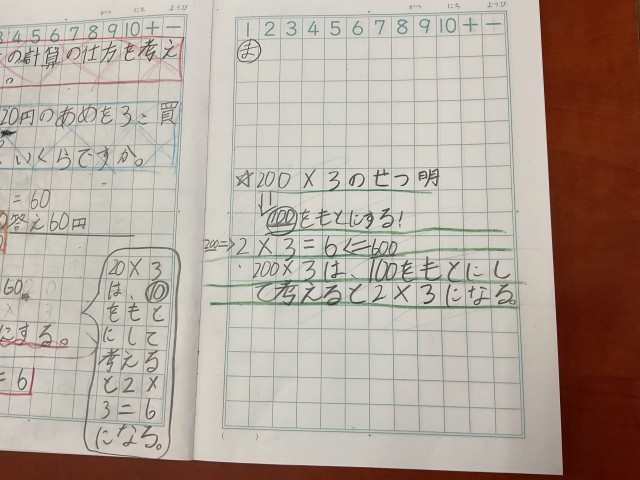 がつ にち ようび
3 4 5 6 7 8 9 10 + −
の計算の仕方を考え
。
20円のあめを3こ買
いくらですか。
= 60
答え60円
60。
にする。
= 6
20×3
は、⑩
をもと
にして
考える
と2×
3=6
になる。
がつ にち ようび
1 2 3 4 5 6 7 8 9 10 + −
ま
☆200×3のせつ明
100をもとにする!
200⇒2×3=6⇐600
・200×3は、100をもとにし
て考えると2×3になる。
( )